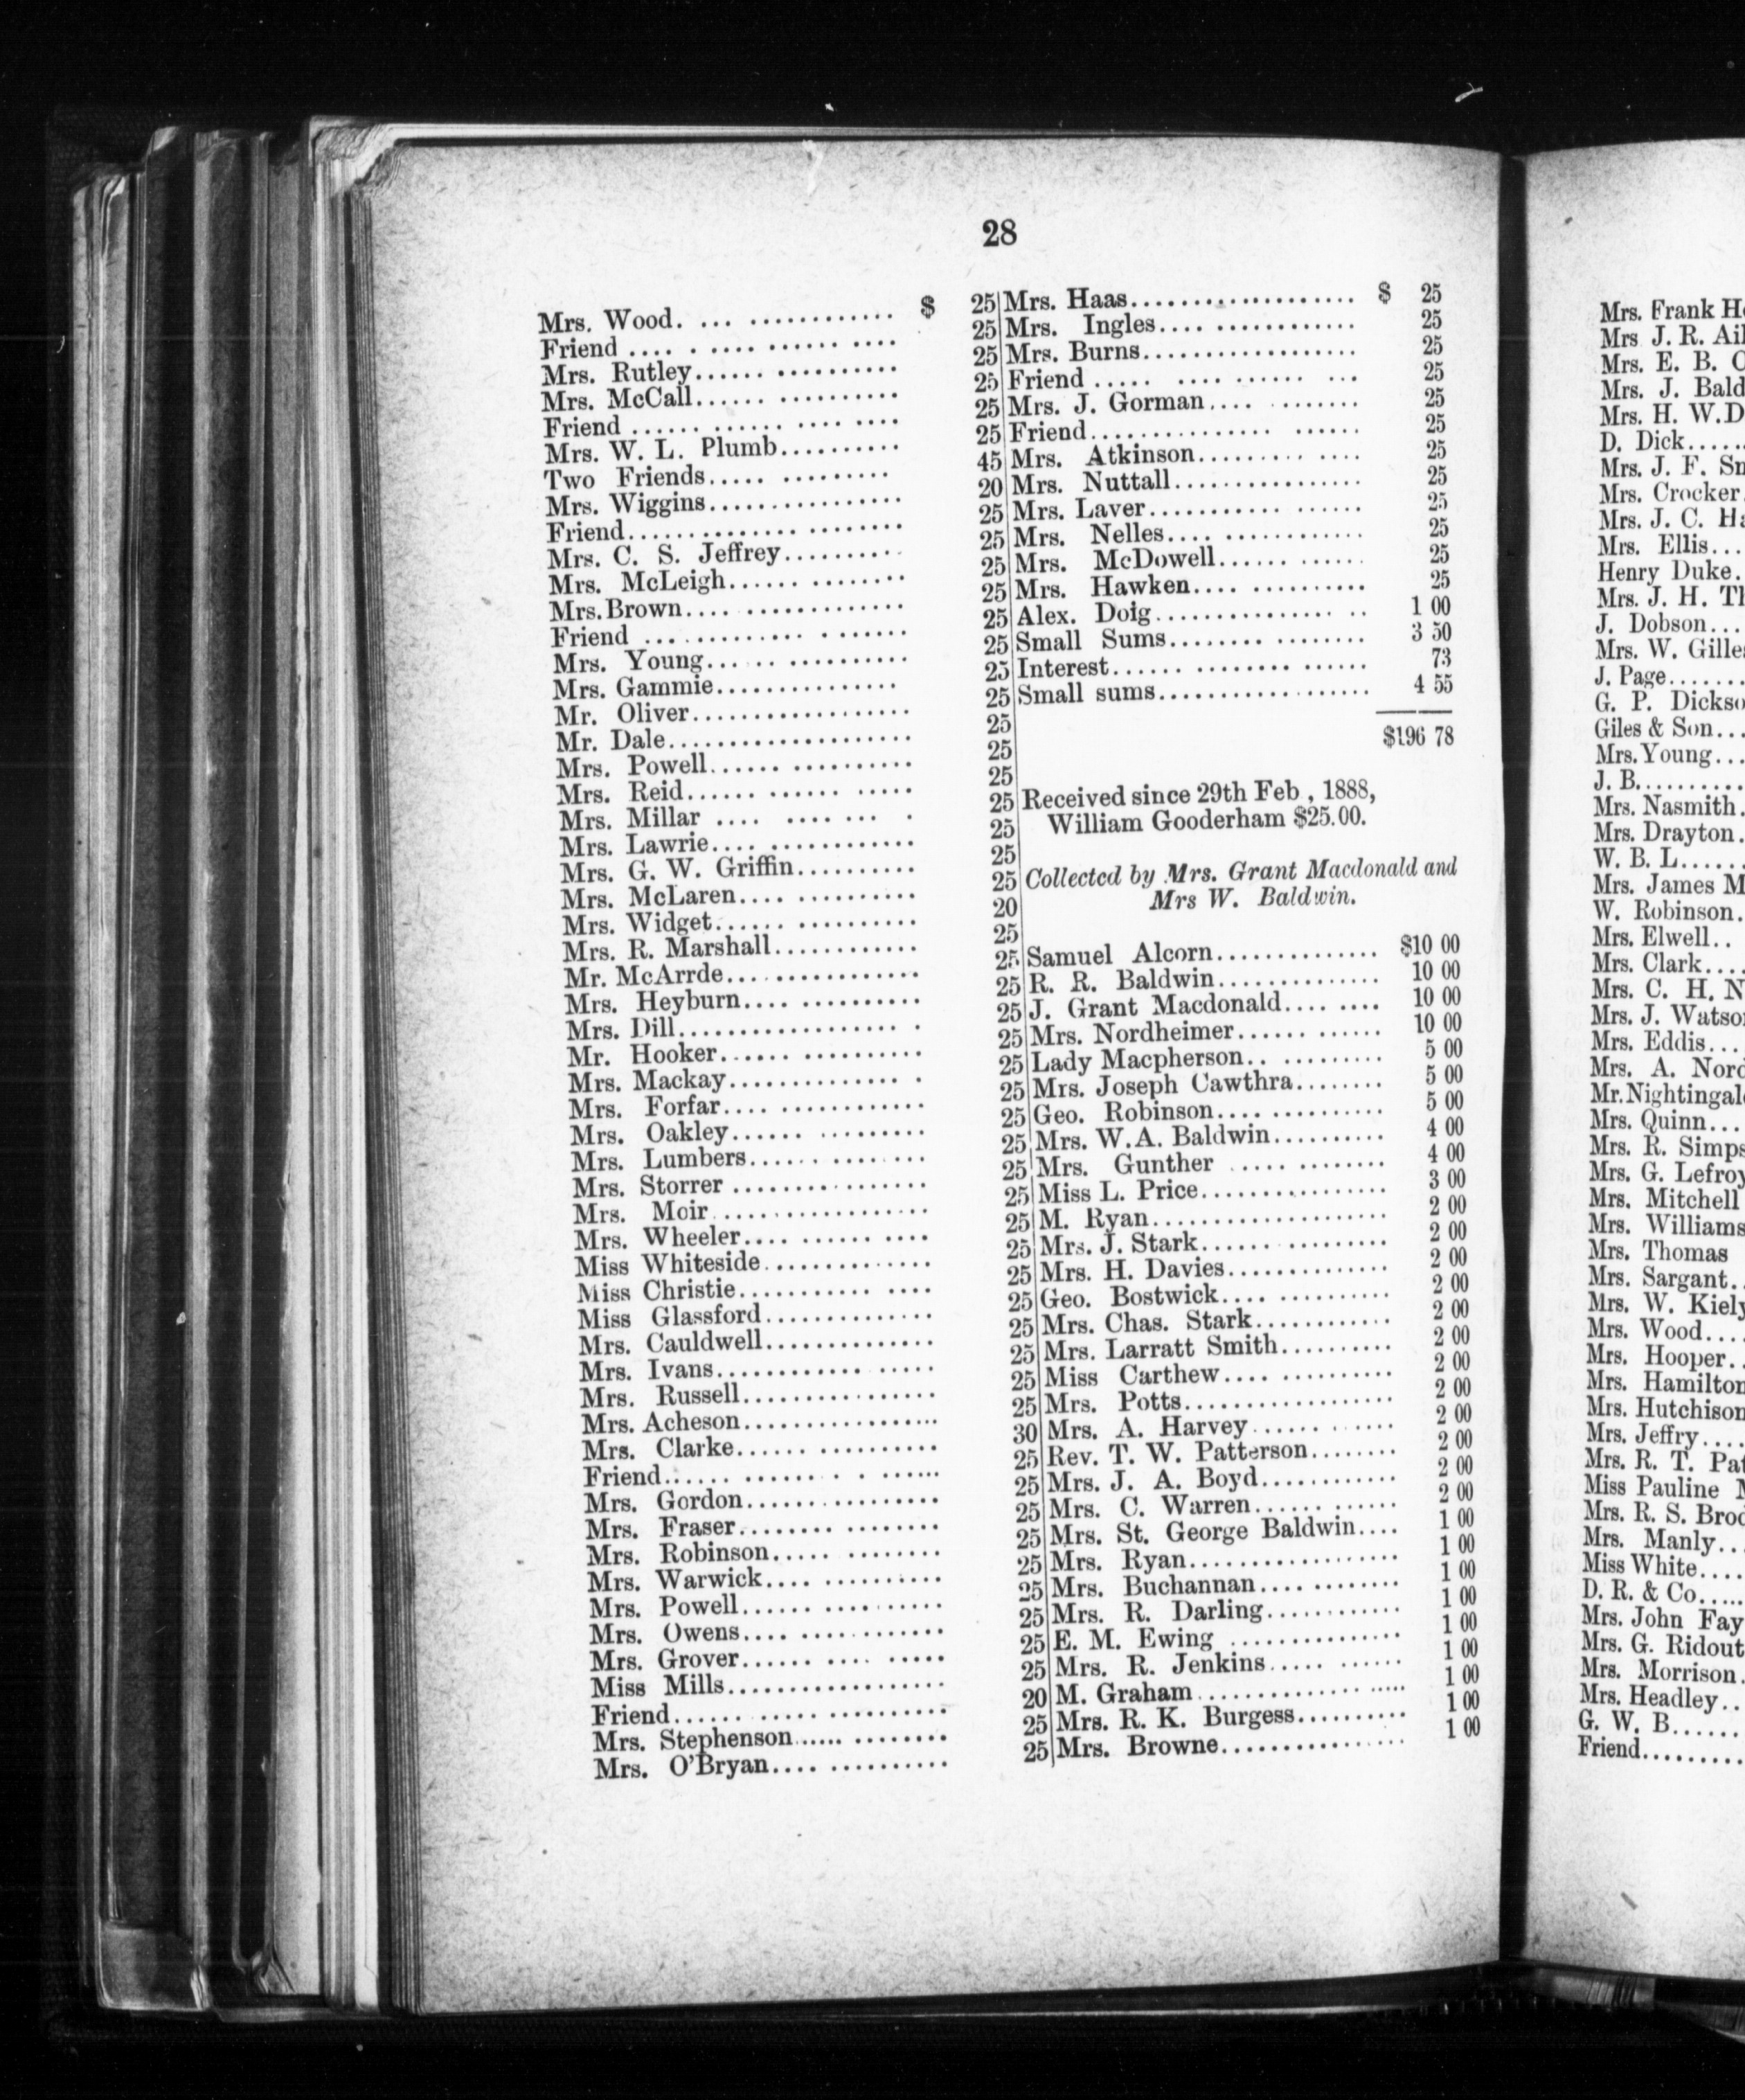 28
Mrs. Wood. .... ............ $ 25
Friend .... . .... ...... .... 25
Mrs. Rutley...... .......... 25
Mrs. McCall...... .......... 25
Friend ...... ...... .... .... 25
Mrs. W. L. Plumb.......... 25
Two Friends..... ......... 45
Mrs. Wiggins................ 20
Friend.............. ........ 25
Mrs. C. S. Jeffrey.......... 25
Mrs. McLeigh...... ........ 25
Mrs.Brown.... ............. 25
Friend ... .......... . ...... 25
Mrs. Young...... .......... 25
Mrs. Gammie............... 25
Mr. Oliver.................. 25
Mr. Dale.................... 25
Mrs. Powell...... .......... 25
Mrs. Reid...... ...... ..... 25
Mrs. Millar .... .... ... . 25
Mrs. Lawrie.... ............ 25
Mrs. G. W. Griffin.......... 25
Mrs. McLaren.... .......... 25
Mrs. Widget...... .......... 20
Mrs. R. Marshall............ 25
Mr. McArrde................ 25
Mrs. Heyburn.... .......... 25
Mrs. Dill.................. . 25
Mr. Hooker...... .......... 25
Mrs. Mackay.............. . 25
Mrs. Forfar.... ............ 25
Mrs. Oakley...... ......... 25
Mrs. Lumbers...... ........ 25
Mrs. Storrer ................ 25
Mrs. Moir .................. 25
Mrs. Wheeler.... ...... .... 25
Miss Whiteside.............. 25
Miss Christie........... .... 25
Miss Glassford.............. 25
Mrs. Cauldwell.............. 25
Mrs. Ivans............ ..... 25
Mrs. Russell................ 25
Mrs. Acheson................ 25
Mrs. Clarke...... .......... 30
Friend...... ....... . . ...... 25
Mrs. Gordon................ 25
Mrs. Fraser........ ........ 25
Mrs. Robinson..... ........ 25
Mrs. Warwick.... .......... 25
Mrs. Powell...... .......... 25
Mrs. Owens.... ............ 25
Mrs. Grover...... .... ..... 25
Miss Mills.................. 25
Friend...... ..... .......... 20
Mrs. Stephenson...... ........ 25
Mrs. O'Bryan.... .......... 25
Mrs. Haas................... $ 25
Mrs. Ingles.... ............ 25
Mrs. Burns.................. 25
Friend ..... .... ...... ... 25
Mrs. J. Gorman.... ....... 25
Friend............... ...... 25
Mrs. Atkinson......... .... 25
Mrs. Nuttall................ 25
Mrs. Laver........... ...... 25
Mrs. Nelles.... ............ 25
Mrs. McDowell...... ...... 25
Mrs. Hawken.... .......... 25
Alex. Doig............... .. 1 00
Small Sums........ ........ 3 50
Interest...... ........ ...... 73
Small sums.................. 4 55
$196 78
Received since 29th Feb , 1888,
William Gooderham $25.00.
Collected by Mrs. Grant Macdonald and
Mrs W. Baldwin.
Samuel Alcorn.............. $10 00
R. R. Baldwin.............. 10 00
J. Grant Macdonald.... .... 10 00
Mrs. Nordheimer...... ...... 10 00
Lady Macpherson.. ......... 5 00
Mrs. Joseph Cawthra........ 5 00
Geo. Robinson.... .......... 5 00
Mrs. W.A. Baldwin.......... 4 00
Mrs. Gunther .... ........ 4 00
Miss L. Price................ 3 00
M. Ryan..................... 2 00
Mrs. J. Stark................ 2 00
Mrs. H. Davies.............. 2 00
Geo. Bostwick.... .......... 2 00
Mrs. Chas. Stark............ 2 00
Mrs. Larratt Smith.......... 2 00
Miss Carthew.... .......... 2 00
Mrs. Potts.................. 2 00
Mrs. A. Harvey............ 2 00
Rev. T. W. Patterson........ 2 00
Mrs. J. A. Boyd............ 2 00
Mrs. C. Warren...... ...... 2 00
Mrs. St. George Baldwin.... 1 00
Mrs. Ryan.................. 1 00
Mrs. Buchannan.... ........ 1 00
Mrs. R. Darling............ 1 00
E. M. Ewing ............... 1 00
Mrs. R. Jenkins..... ...... 1 00
M. Graham .................. 1 00
Mrs. R. K. Burgess.......... 1 00
Mrs. Browne................ 1 00
Mrs. Frank
Mrs J. R.
Mrs. E. B.
Mrs. J.
Mrs. H.
D. Dick......
Mrs. J. F.
Mrs. Crocker.
Mrs. J. C.
Mrs. Ellis...
Henry Duke.
Mrs. J. H.
J. Dobson...
Mrs. W.
J. Page.......
G. P.
Giles & Son...
Mrs. Young...
J. B.........
Mrs. Nasmith.
Mrs. Drayton.
W. B. L......
Mrs. James
W. Robinson.
Mrs. Elwell..
Mrs. Clark....
Mrs. C. H.
Mrs. J.
Mrs. Eddis...
Mrs. A.
Mrs. Quinn...
Mrs. R.
Mrs. G.
Mrs. Mitchell
Mrs.
Mrs. Thomas
Mrs. Sargant..
Mrs. W. Kiely
Mrs. Wood....
Mrs. Hooper..
Mrs. Hamilton
Mrs. Hutchison
Mrs. Jeffry....
Mrs. R. T.
Miss Pauline
Mrs. R. S.
Mrs. Manly...
Miss White....
D. R. & Co.....
Mrs. John Fay
Mrs. G. Ridout
Mrs. Morrison.
Mrs. Headley..
G. W. B......
Friend.........